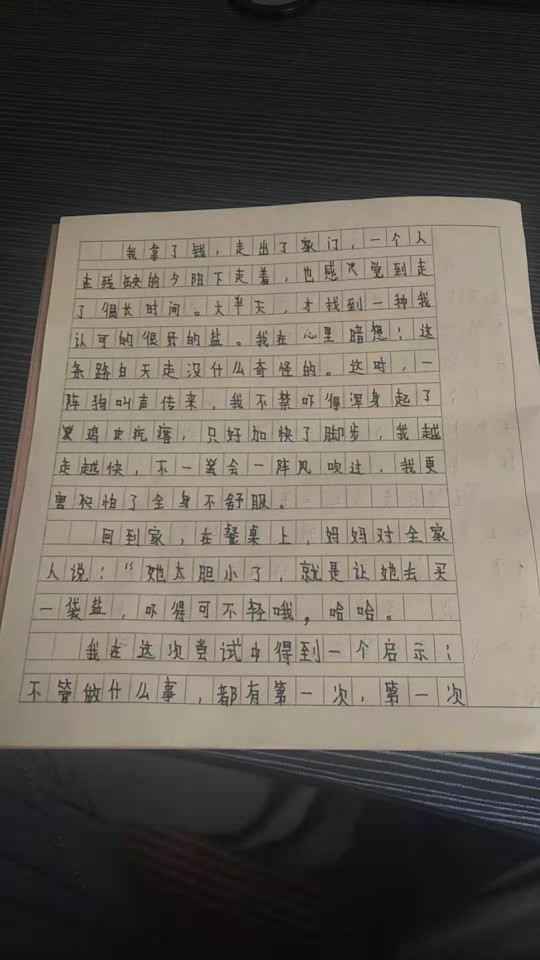 我拿了钱，走出了家门，一个人
走残缺的夕阳下走着，也感觉到走
了很长时间。大半天，才找到一种我
认可的很好的盐。我在心里暗想：这
条路白天走没什么奇怪的。这时，一
阵狗叫声传来，我不禁吓得浑身起了
鸡皮疙瘩，只好加快了脚步，我越
走越快，不一会一阵风吹过，我更
害怕了全身不舒服。
回到家，在餐桌上，妈妈对全家
人说：“她太胆小了，就是让她去买
一袋盐，吓得可不轻哦，哈哈。
我在这次尝试中得到一个启示：
不管做什么事，都有第一次，第一次